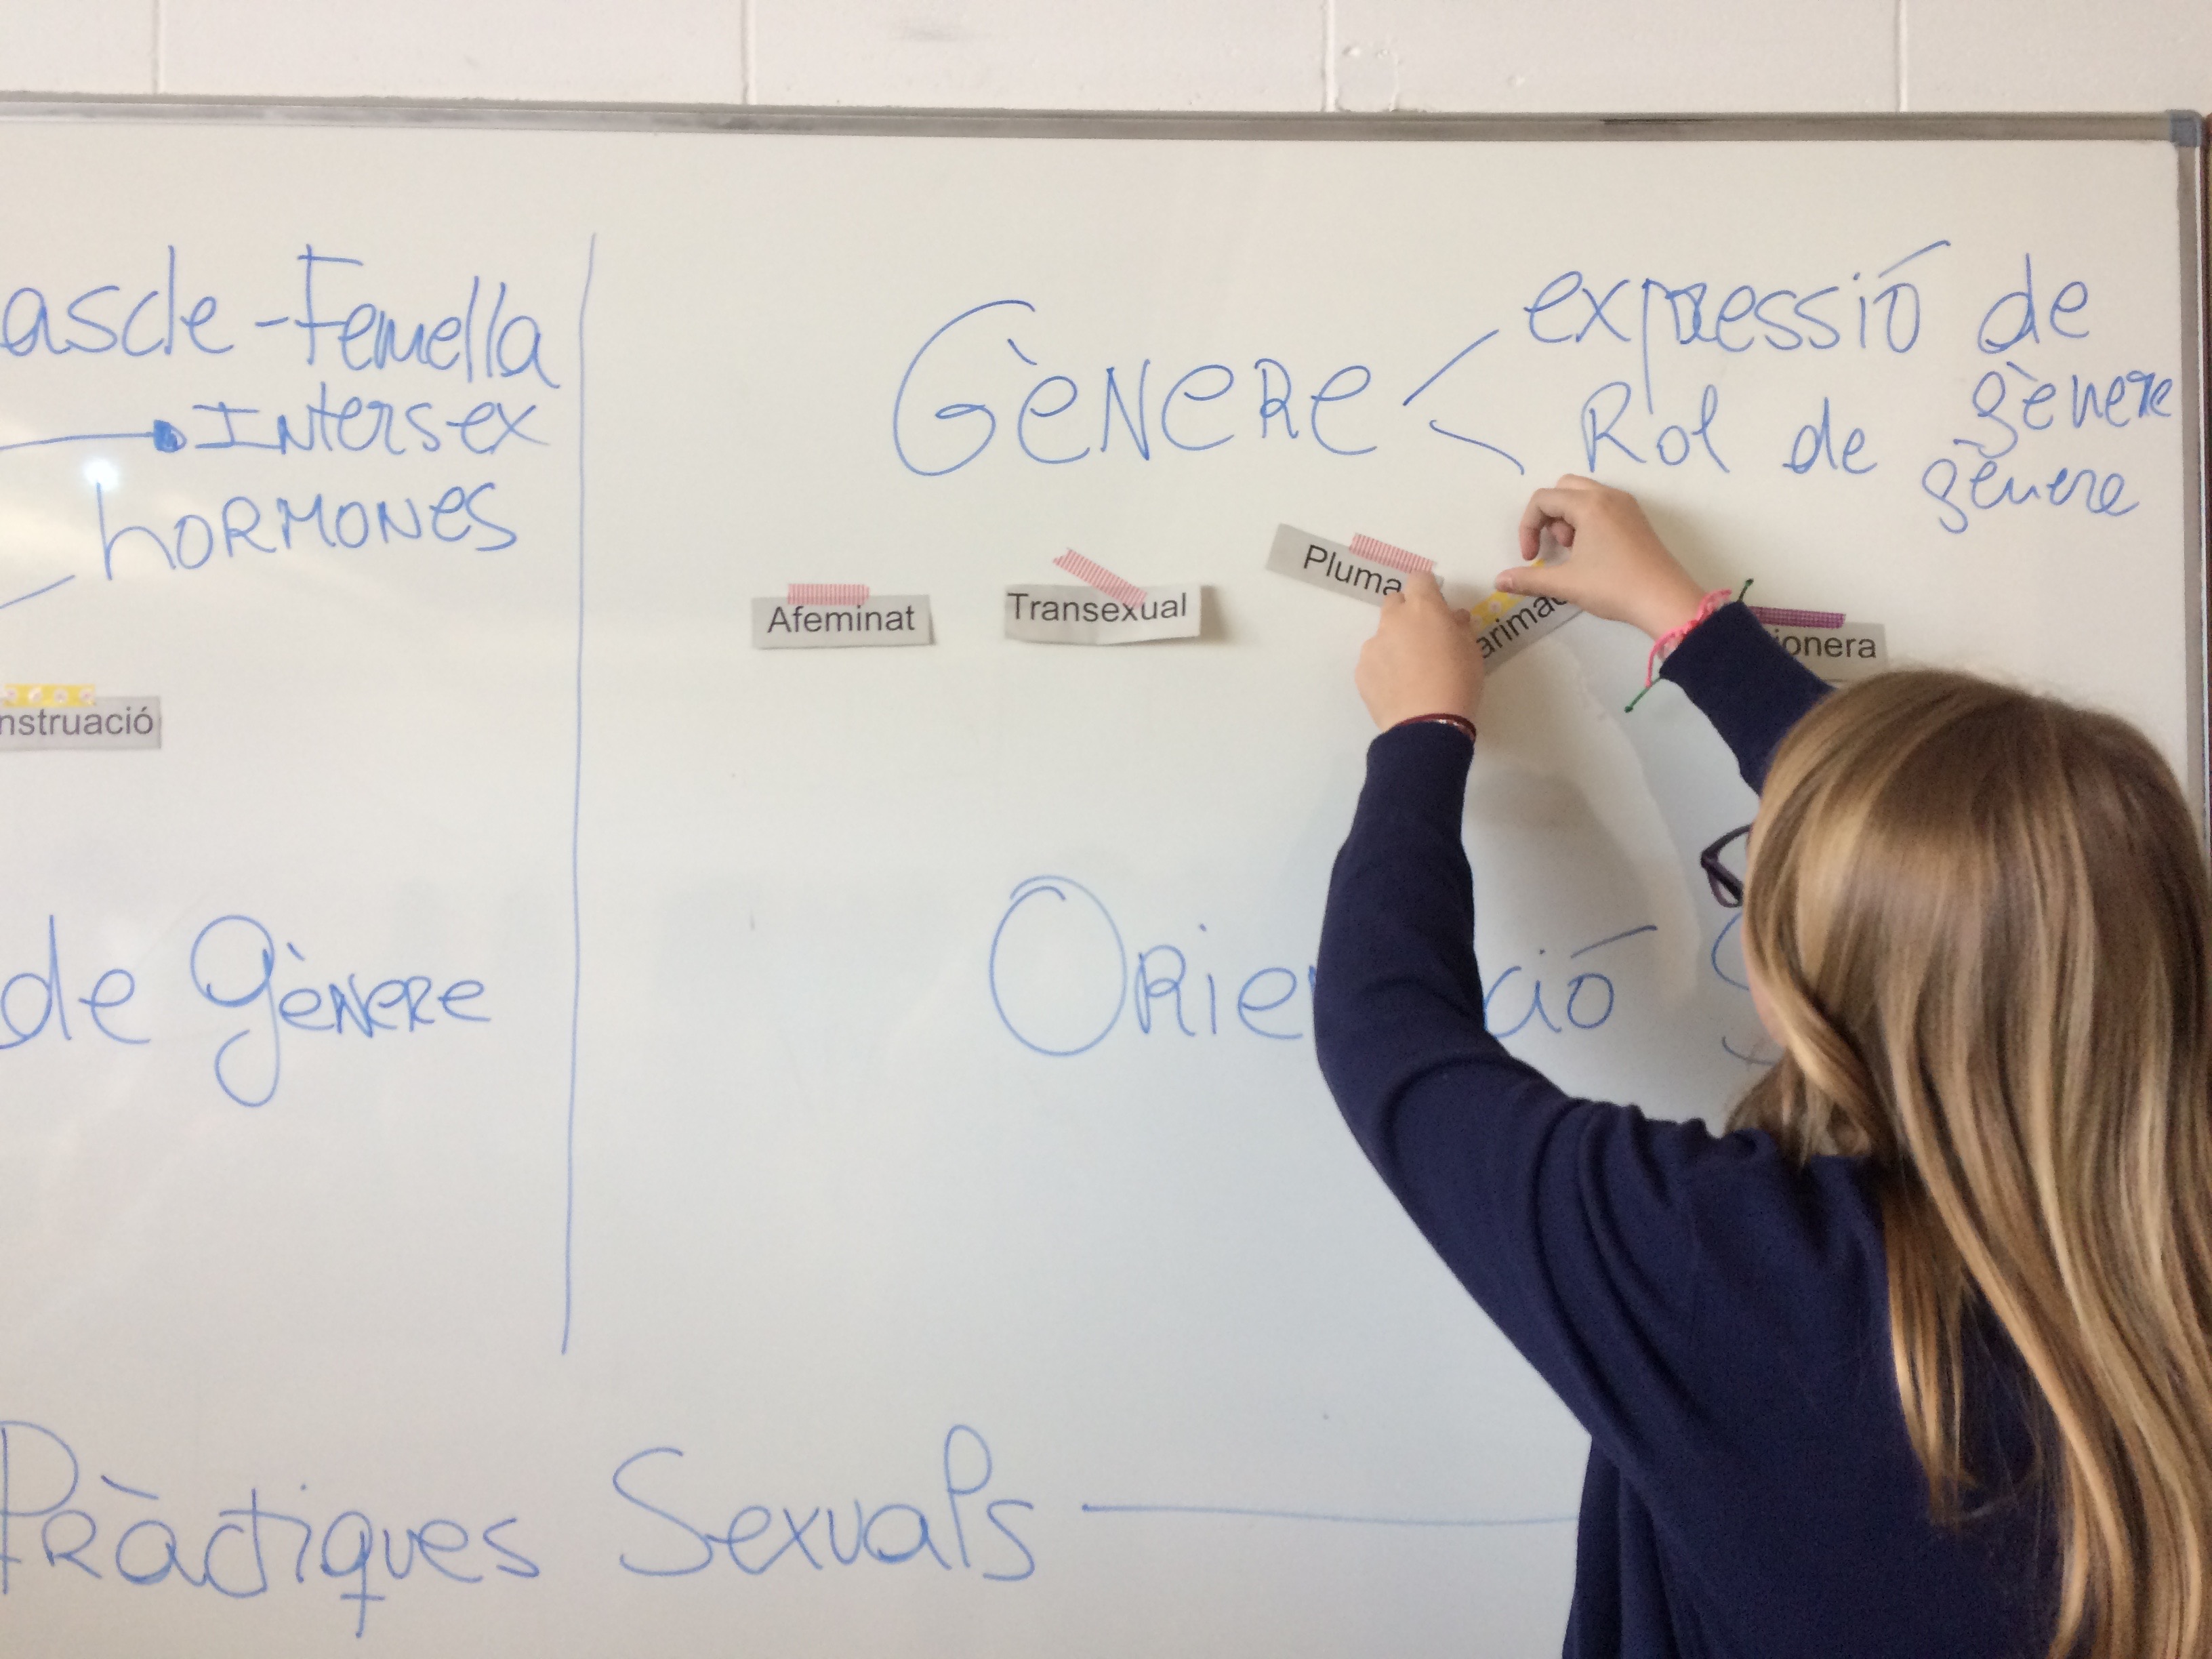 ascle - Femella
Intersex
hormones
nstruació
Gènere
expressió de
gènere
Rol de
gènere
Afeminat
Transexual
Pluma
arimac
ionera
de Gènere
Orie ció
Pràctiques Sexuals